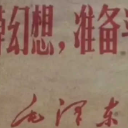 幻想，准备
毛泽东